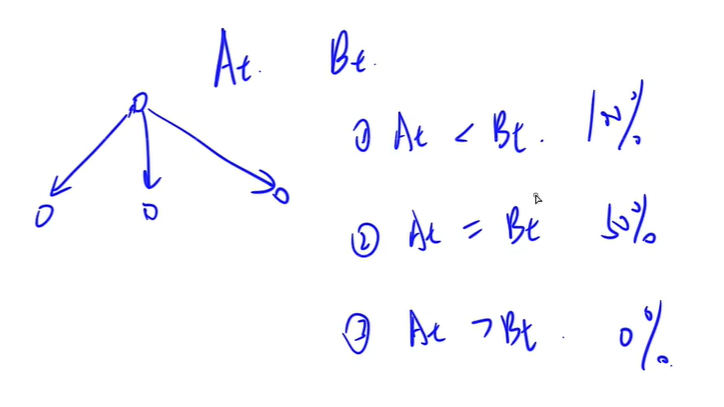 At. Bt.
① At < Bt. 100%
② At = Bt 50%
③ At > Bt. 0%